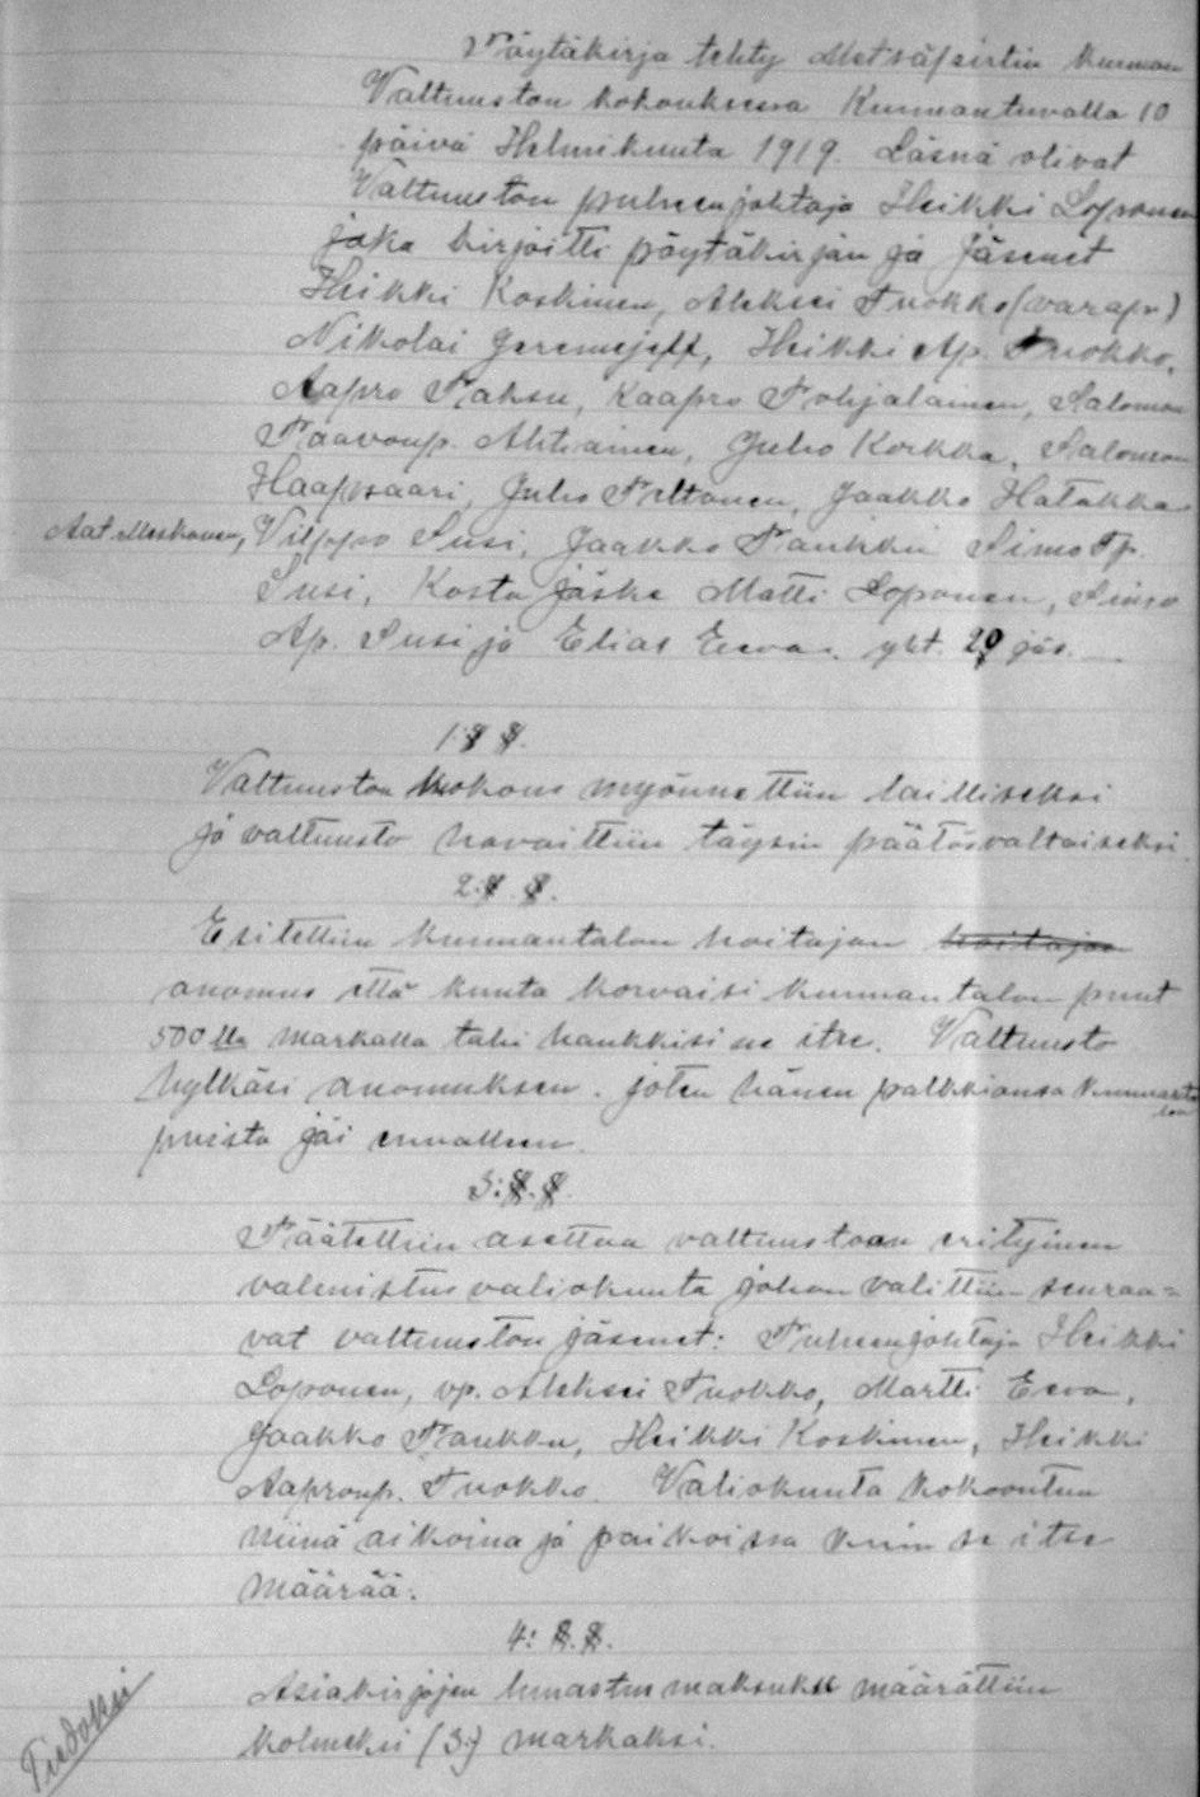 Pöytäkirja tehty Metsäpirtin kunnan
Valtuuston kokouksessa Kunnantuvalla 10
päivä Helmikuuta 1919. Läsnä olivat
Valtuuston puheenjohtaja Heikki Loponen
joka kirjoitti pöytäkirjan ja jäsenet
Heikki Koskinen, Aleksei Tuokko (varapu)
Nikolai Jeremejeff, Heikki Ap. Tuokko,
Aapro Rahsu, Kaapro Pohjalainen, Salomon
Paavonp. Ahtiainen, Juho Korkka, Salomon
Haapsaari, Juho Peltonen, Jaakko Hatakka
Aat. Meskanen, Vilppo Susi, Jaakko Paukku Simo Tp.
Susi, Kosta Jäske Matti Loponen, Simo
Ap. Susi ja Elias Eeva. yht. 20 jäs.
1:§ §.
Valtuuston kokous myönnettiin lailliseksi
ja valtuusto havaittiin täysin päätösvaltaiseksi.
2:§. §.
Esitettiin kunnantalon hoitajan hoitajan
anomus että kunta korvaisi kunnantalon puut
500 lla markalla tahi hankkisi ne itse. Valtuusto
hylkäsi anomuksen. joten hänen palkkionsa kunnanta
lon
puista jäi ennalleen.
3:§.§.
Päätettiin asettaa valtuustoon erityinen
valmistusvaliokunta johon valittiin seuraa=
vat valtuuston jäsenet: Puheenjohtaja Heikki
Loponen, vp. Aleksei Tuokko, Martti Eeva,
Jaakko Paukku, Heikki Koskinen, Heikki
Aapronp. Tuokko. Valiokunta kokoontuu
niinä aikoina ja paikoissa kuin se itse
määrää.
4: §.§.
Asiakirjojen lunastusmaksuksi määrättiin
kolmeksi (3:) markaksi.
Tiedoksi